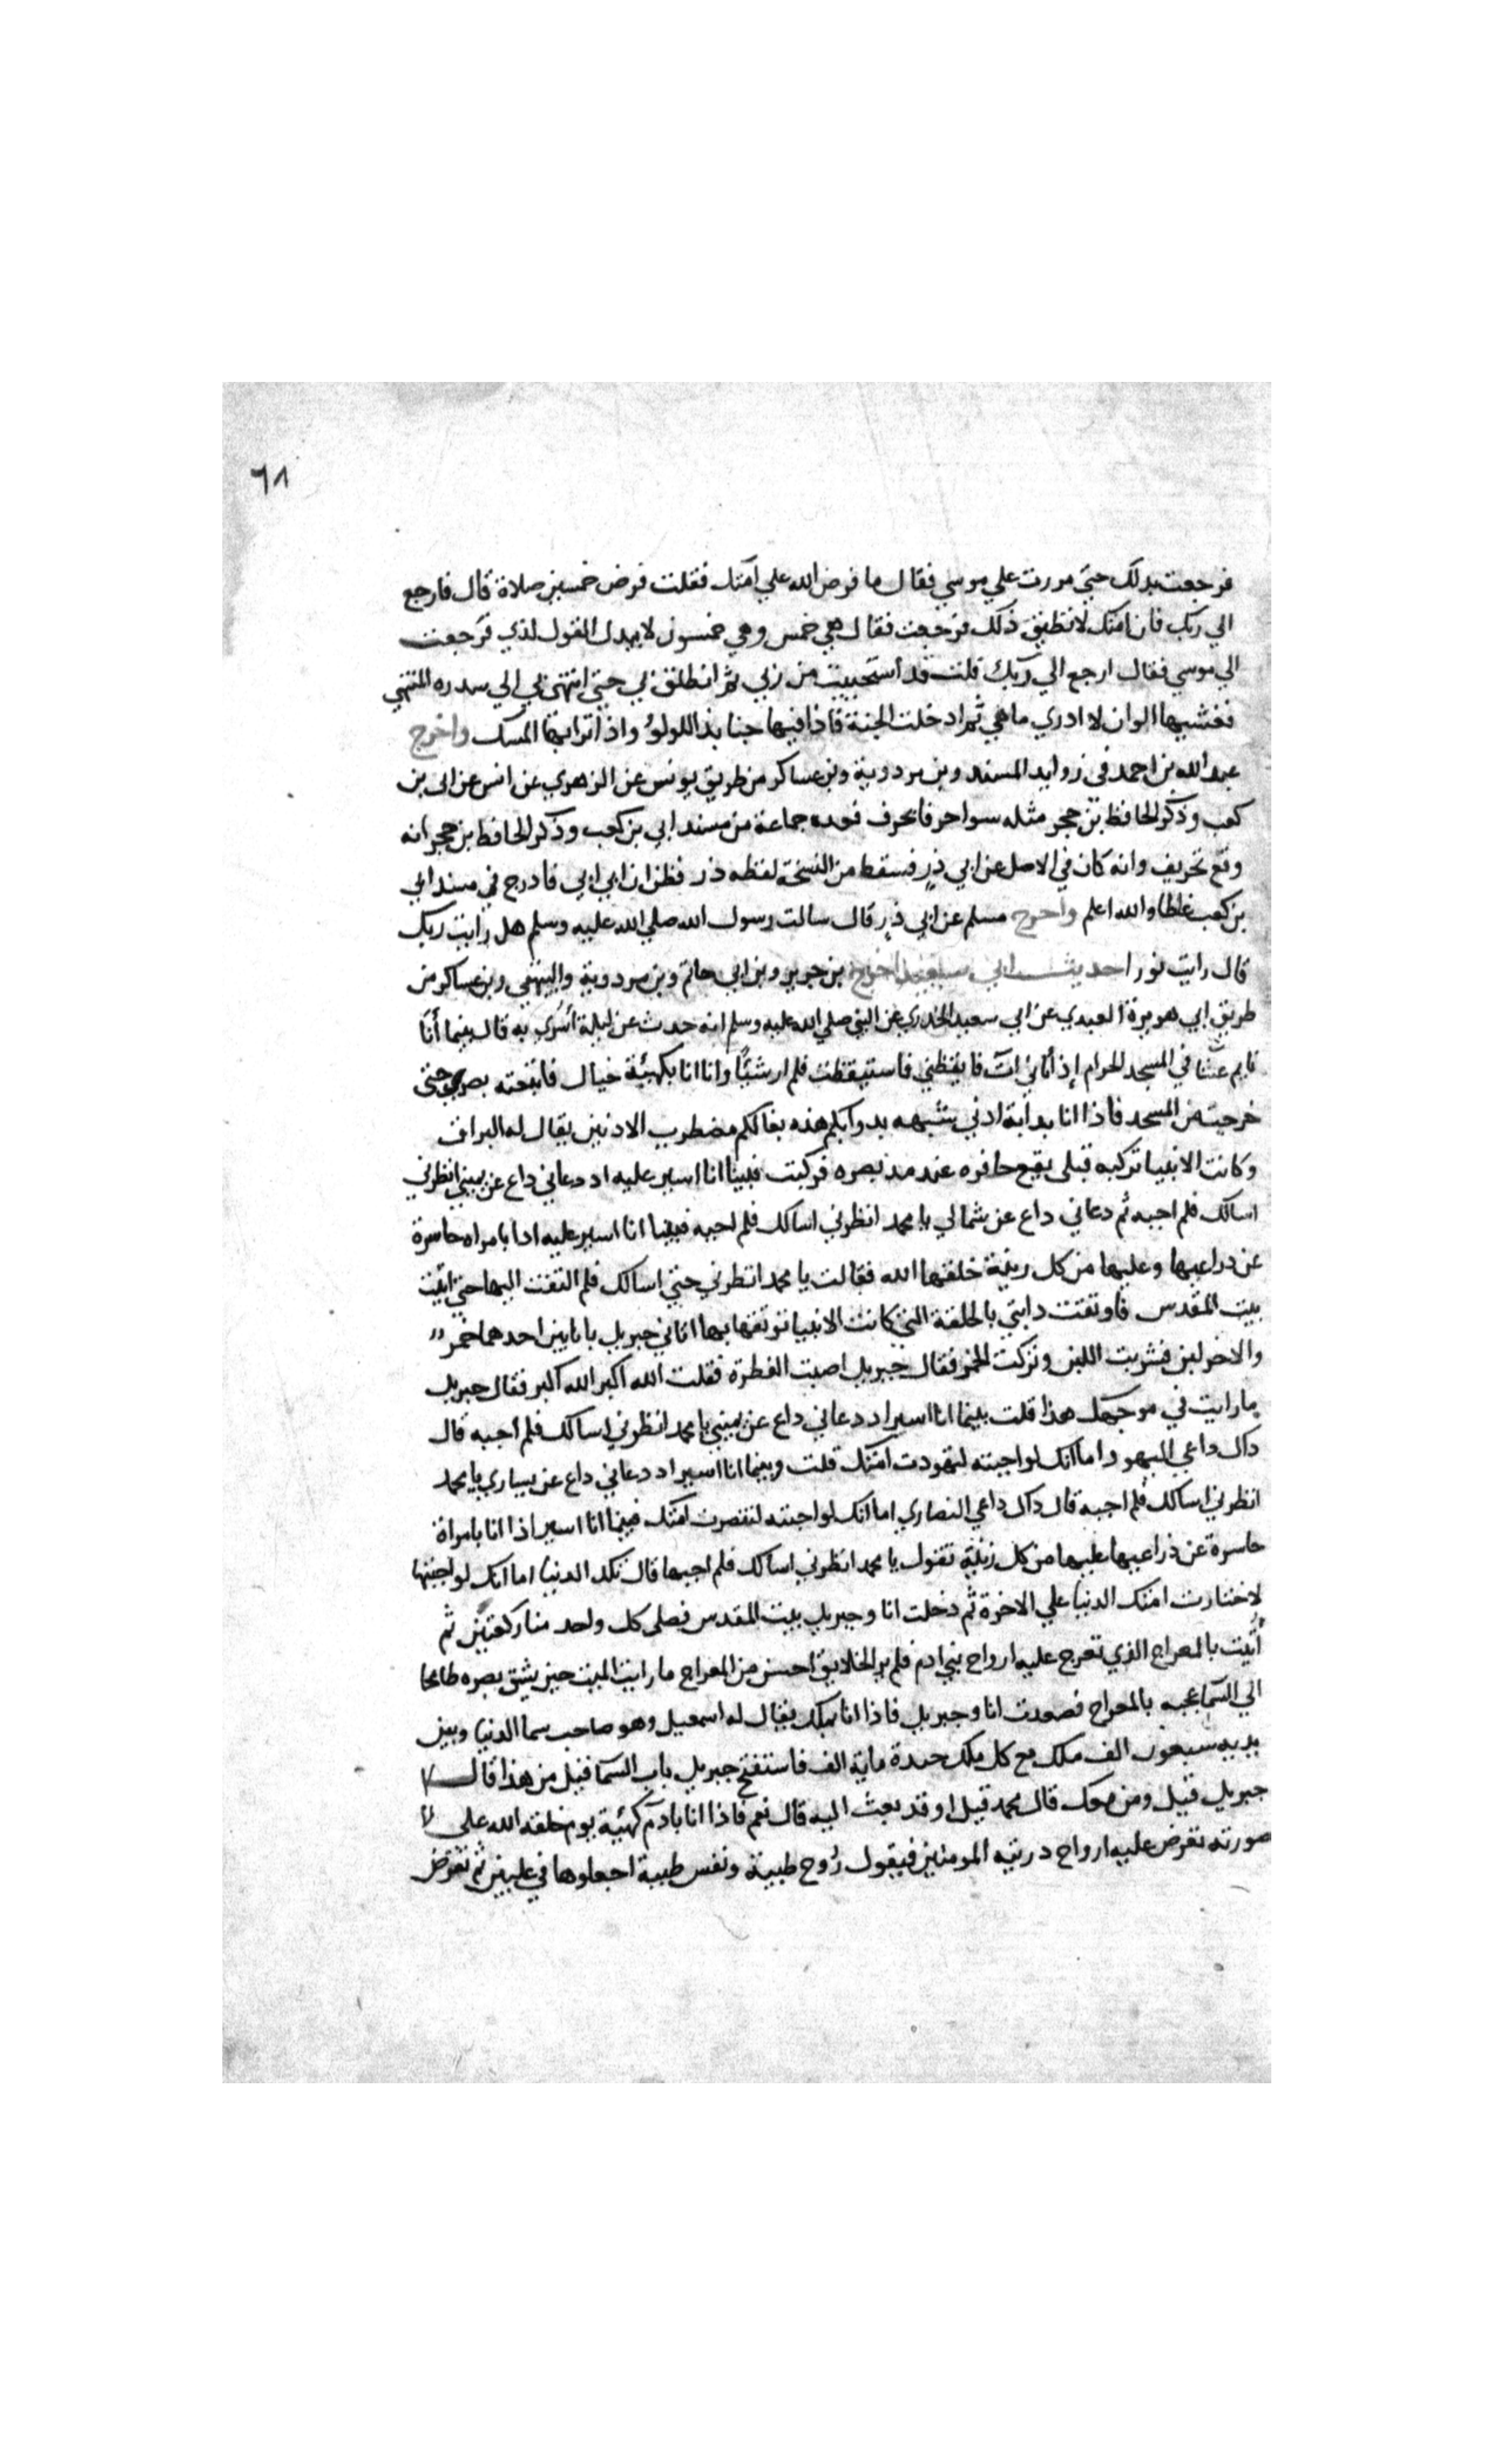 ٦٨
فرجعت بدلك حتي مررت علي موسي فقال ما فرض الله علي امتك فقلت فرض خمسين صلاة قال فارجع
الي ربك فان امتك لا تطيق ذلك فرجعت فقال هي خمس وهي خمسون لا يبدل القول لدي فرجعت
الي موسي فقال ارجع الي ربك قلت قد استحييت من ربي ثم انطلق بي حتي انتهى بي الي سدره المنتهي
فغشيها الوان لا ادري ماهي ثم ادخلت الجنة فاذا فيها جنابذ اللولؤ واذا ترابها المسك واخرج
عبد الله بن احمد في زوايد المسند وبن مردوية وبن عساكر من طريق يونس عن الزهري عن انس عن ابي بن
كعب وذكر الحافظ بن حجر مثله سوا حرفا بحرف فعده جماعة من مسند ابي بن كعب وذكر الحافظ بن حجر انه
وقع تحريف وانه كان في الاصل عن ابي ذر فسقط من النسخة لفظه ذر فظن ان ابي ابي فادرج في مسند ابي
بن كعب غلطا والله اعلم واخرج مسلم عن ابي ذر قال سالت رسول الله صلي الله عليه وسلم هل رايت ربك
قال رايت نورا حديث ابي سعيد اخرج بن جرير وبن ابي حاتم وبن مردوية والبيهقي وبن عساكر من
طريق ابي هريرة العبدي عن ابي سعيد الخدري عن النبي صلي الله عليه وسلم انه حدث عن ليلة اسري به قال بينما أنا
نايم عشا في المسجد الحرام إذ أتاني آت فايقظني فاستيقظت فلم ار شيًا وانا انا بكهيئة خيال فاتبعته بصري حتى
خرجت من المسجد فاذا انا بدابة ادني شبهه بدوابكم هذه بغالكم مضطرب الاذنين يقال له البراق
وكانت الانبيا تركبه قبلى يقع حافره عند مد بصره فركبت فبينا انا اسير عليه اد دعاني داع عن يميني انظرني
اسالك فلم اجبه ثم دعاني داع عن شمالي يا محمد انظرني اسالك فلم اجبه فبينا انا اسير عليه ادا بامراه حاسرة
عن دراعيها وعليها من كل زينة خلقها الله فقالت يا محمد انظرني حتي اسالك فلم التفت اليها حتي اتيت
بيت المقدس فاوثقت دابتي بالحلقة التي كانت الانبيا توثقها بها اتاني جبريل بانايين احدهما خمر
والاخر لبن فشربت اللبن وتركت الخمر فقال جبريل اصبت الفطرة فقلت الله اكبر الله اكبر فقال جبريل
ما رايت في موجهك هذا قلت بينما انا اسير اد دعاني داع عن يميني يا محمد انظرني اسالك فلم أجبه قال
داك داعي اليهود اما انك لو اجبته لتهودت امتك قلت وبينما انا اسير اد دعاني داع عن يساري يا محمد
انظرني اسالك فلم اجبه قال داك داعي النصاري اما انك لو اجبته لتنصرت امتك فبينما انا اسير اذا انا بامراة
حاسرة عن ذراعيها عليها من كل زينة تقول يا محمد انظرني اسالك فلم اجبها قال تلك الدنيا اما انك لو اجبتها
لاختارت امتك الدنيا علي الاخرة ثم دخلت انا وجبريل بيت المقدس فصلى كل واحد منا ركعتين ثم
أتيت بالمعراج الذي تعرج عليه ارواح بني ادم فلم ير الخلايق احسن من المعراج ما رايت الميت حين يشق بصره طامحا
الي السما عجبه بالمعراج فصعدت انا وجبريل فاذا انا بملك يقال له اسمعيل وهو صاحب سما الدنيا وبين
يديه سبعون الف ملك مع كل ملك جنده ماية الف فاستفتح جبريل باب السما فقيل من هذا قال
جبريل قيل ومن معك قال محمد قيل اوقد بعث اليه قال نعم فاذا انا بادم كهيئة يوم خلقه الله علي
صورته تعرض عليه ارواح دريته المومنين فيقول رُوح طيبة ونفس طيبة اجعلوها في عليين ثم تعرض